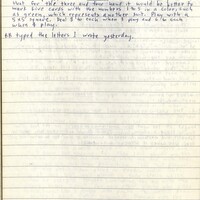 that for the three and four hand it would be better to
most bird cards with the numbers 1 to 5 in a color, such
as green, which represents another suit. Play with a
5x5 square. Deal 8 to each when 3 play and 6 to each
when 4 play.
I typed the letters I wrote yesterday.